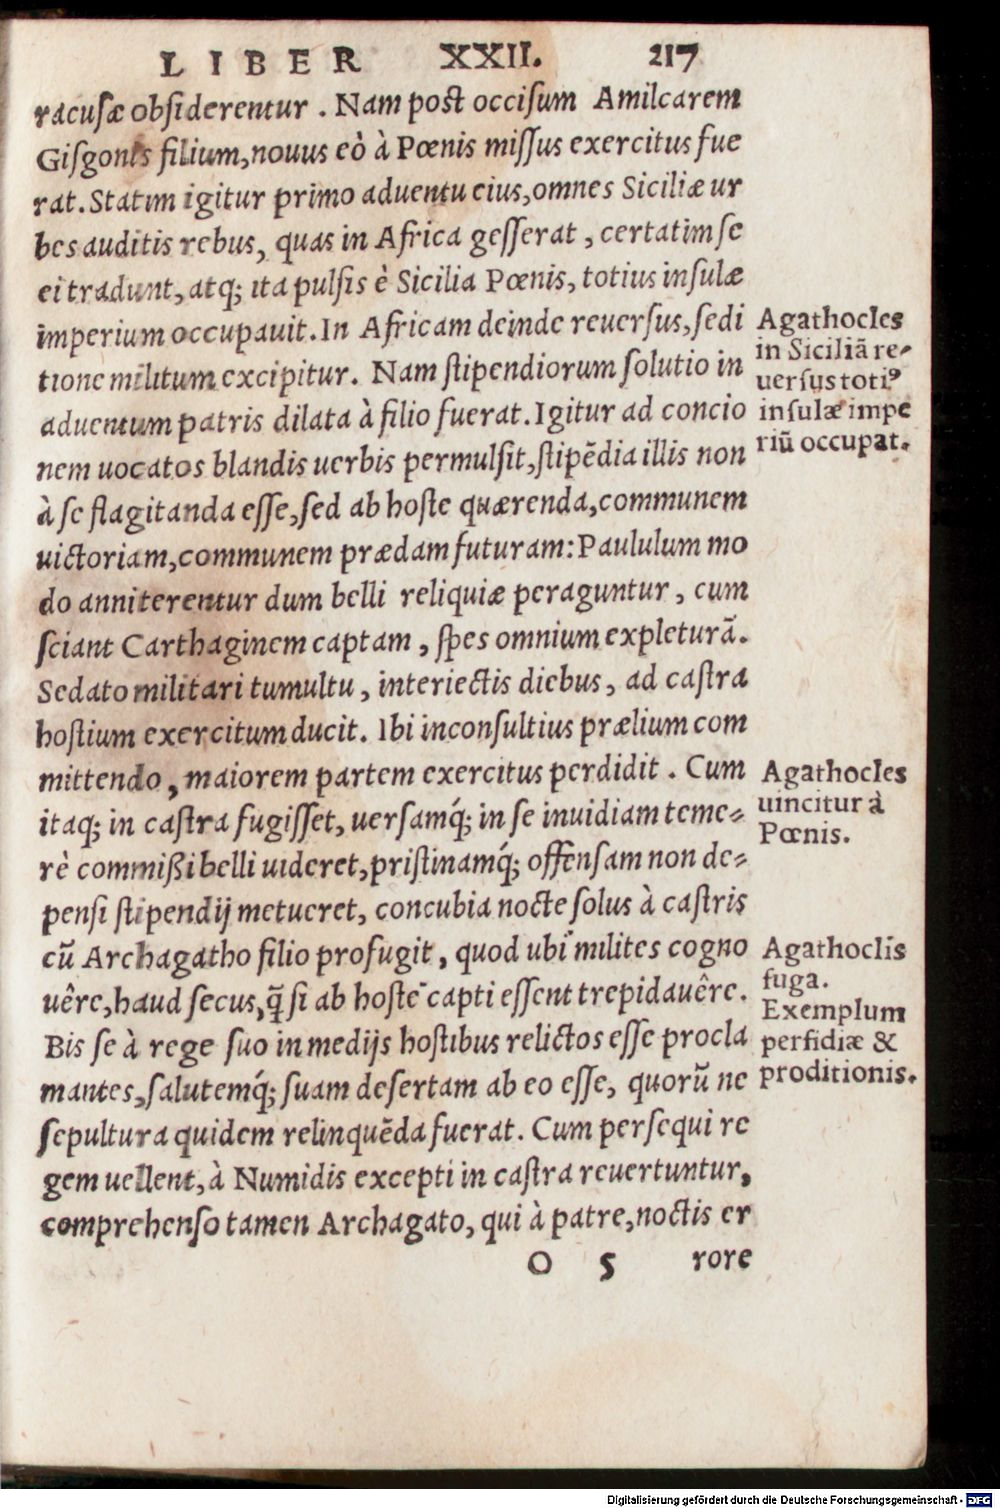 LIBER XXII. 217
racusæ obsiderentur. Nam post occisum Amilcarem
Gisgonis filium, nouus eò à Pœnis missus exercitus fue
rat. Statim igitur primo aduentu eius, omnes Siciliæ ur
bes auditis rebus, quas in Africa gesserat, certatim se
ei tradunt, atq; ita pulsis è Sicilia Pœnis, totius insulæ
imperium occupauit. In Africam deinde reuersus, sedi
tione militum excipitur. Nam stipendiorum solutio in
aduentum patris dilata à filio fuerat. Igitur ad concio
nem uocatos blandis uerbis permulsit, stipẽdia illis non
à se flagitanda esse, sed ab hoste quærenda, communem
uictoriam, communem prædam futuram: Paululum mo
do anniterentur dum belli reliquiæ peraguntur, cum
sciant Carthaginem captam, spes omnium expleturã.
Sedato militari tumultu, interiectis diebus, ad castra
hostium exercitum ducit. Ibi inconsultius prælium com
mittendo, maiorem partem exercitus perdidit. Cum
itaq; in castra fugisset, uersamq́; in se inuidiam teme-
rè commißi belli uideret, pristinamq́; offensam non de-
pensi stipendij metueret, concubia nocte solus à castris
cũ Archagatho filio profugit, quod ubi milites cogno
uêre, haud secus, q̃ si ab hoste capti essent trepidauêre.
Bis se à rege suo in medijs hostibus relictos esse procla
mantes, salutemq́; suam desertam ab eo esse, quorũ ne
sepultura quidem relinquẽda fuerat. Cum persequi re
gem uellent, à Numidis excepti in castra reuertuntur,
comprehenso tamen Archagato, qui à patre, noctis er
O 5 rore
Agathocles
in Siciliã re-
uersus totiꝰ
insulæ impe
riũ occupat.
Agathocles
uincitur à
Pœnis.
Agathoclis
fuga.
Exemplum
perfidiæ &
proditionis.
Digitalisierung gefördert durch die Deutsche Forschungsgemeinschaft - DFG